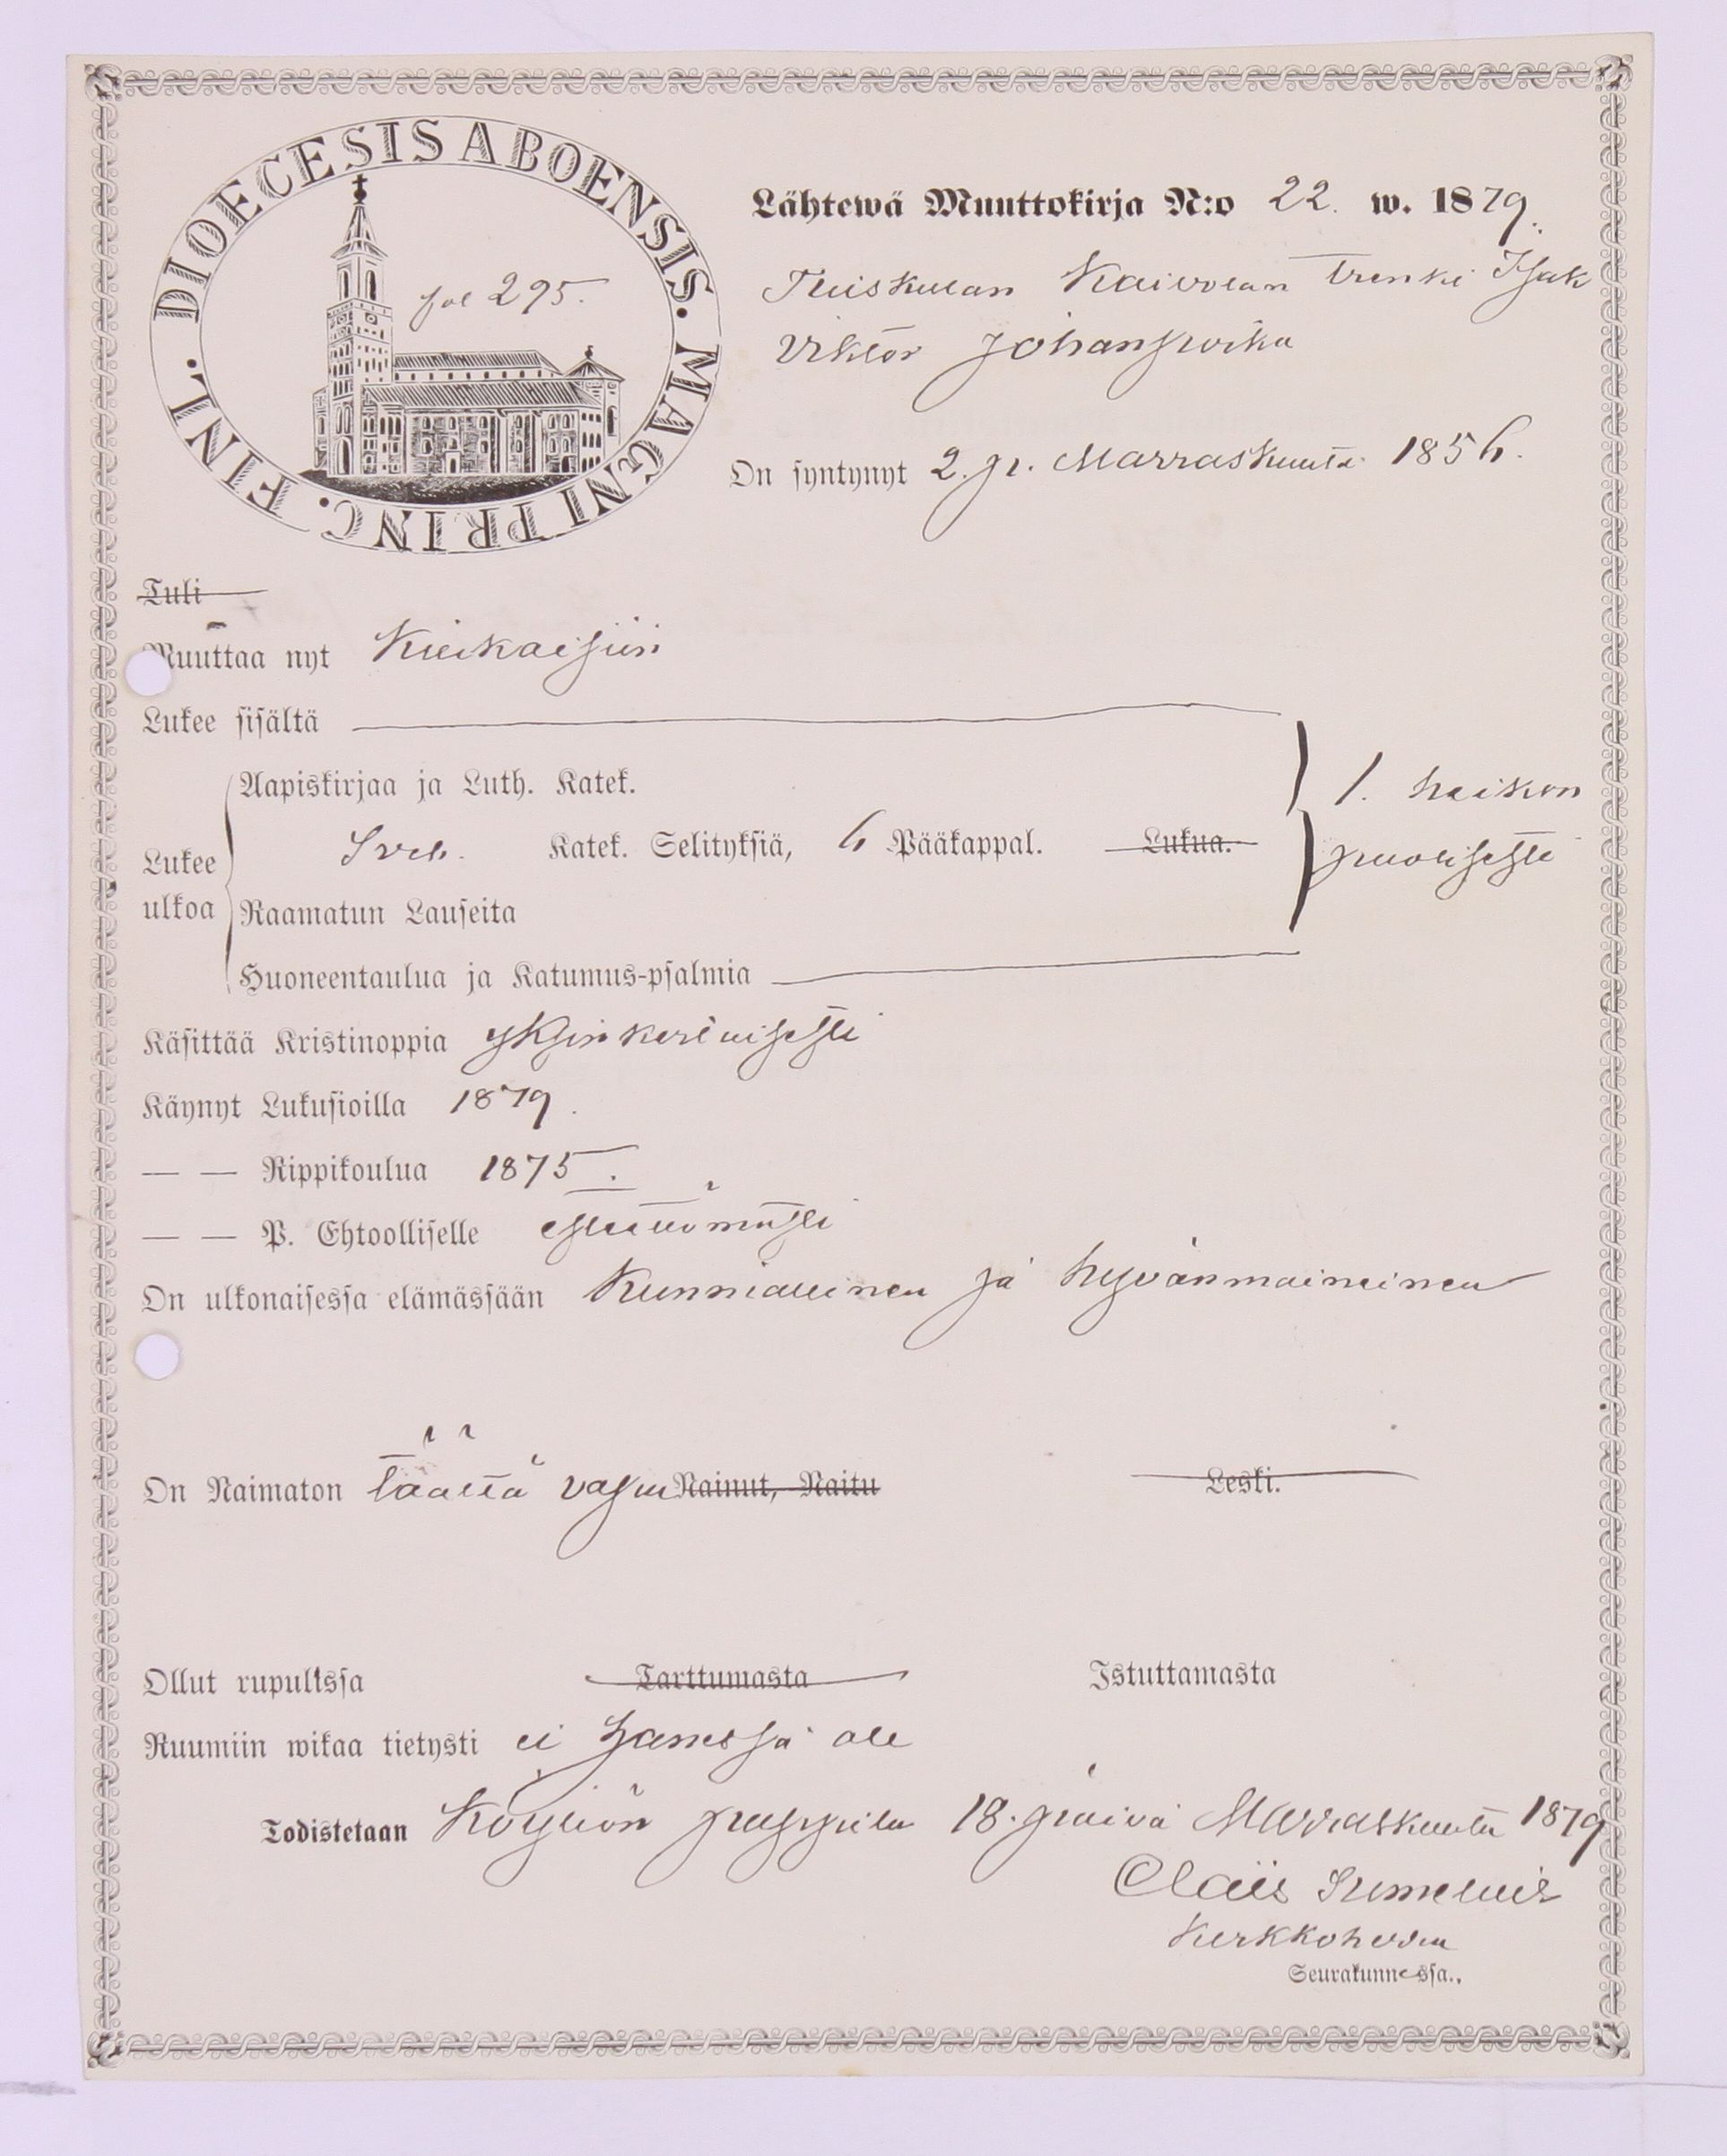 DIOECESIS ABOENSIS. MAGNI PRINC. FINL.
fol 295.
Lähtewä Muuttokirja N:o 22. w. 1879.
Tuiskulan Kaivolan trenki Isak
Viktor Johanpoika
On syntynyt 2. p. Marraskuuta 1856.
Tuli
Muuttaa nyt Kiukaisiin
Lukee sisältä
Aapiskirjaa ja Luth. Katek.
Lukee ulkoa Sveb. Katek. Selityksiä, 6 Pääkappal. Lukua.
Raamatun Lauseita
Huoneentaulua ja Katumus-psalmia
1. heikon
puolisesti
Käsittää Kristinoppia yksinkertaisesti
Käynyt Lukusioilla 1879.
— — Rippikoulua 1875.
— — P. Ehtoolliselle esteettömästi
On ulkonaisessa elämässään Kunniallinen ja hyvänmaineinen
On Naimaton täällä vapa Nainut, Naitu Leski.
Ollut rupulissa Tarttumasta Istuttamasta
Ruumiin wikaa tietysti ei hänessä ole
Todistetaan Köyliön pappila 18. päivä Marraskuuta 1879
Kirkkoherra
Seurakunnessa.,